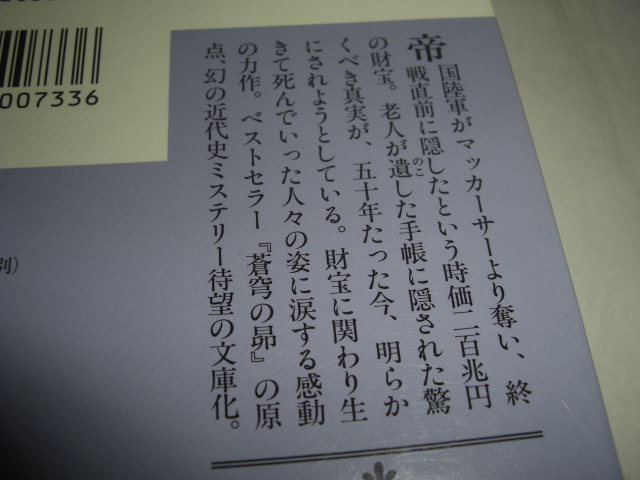 帝国陸軍がマッカーサーより奪い、終
戦直前に隠したという時価二百兆円
の財宝。老人が遺した手帳に隠された驚
くべき真実が、五十年たった今、明らか
にされようとしている。財宝に関わり生
きて死んでいった人々の姿に涙する感動
の力作。ベストセラー『蒼穹の昴』の原
点、幻の近代史ミステリー待望の文庫化。
のこ
007336
別)